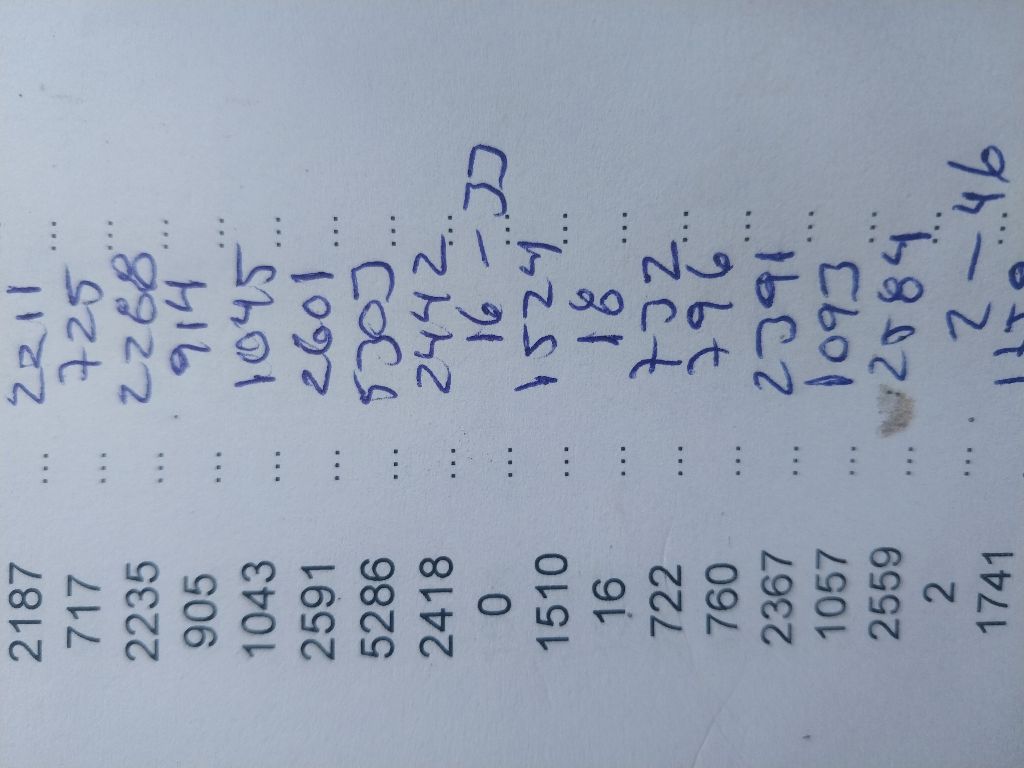 2187 ... 2211 ...
717 ... 725 ...
2235 ... 2268 ...
905 ... 914 ...
1043 ... 1045 ...
2591 ... 2601 ...
5286 ... 5303 ...
2418 ... 2442 ...
0 ... 16 - 33 ...
1510 ... 1524 ...
16 ... 18 ...
722 ... 732 ...
760 ... 796 ...
2367 ... 2391 ...
1057 ... 1093 ...
2559 ... 2584 ...
2 ... 2 - 46 ...
1741 ...